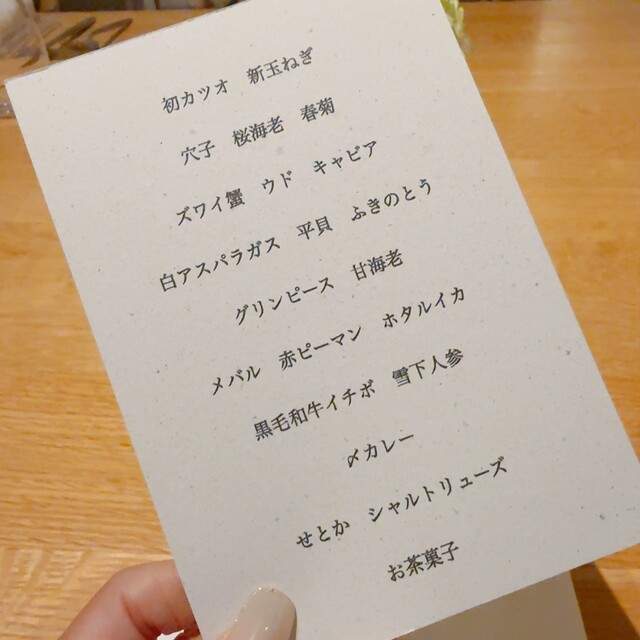 初カツオ　新玉ねぎ
穴子　桜海老　春菊
ズワイ蟹　ウド　キャビア
白アスパラガス　平貝　ふきのとう
グリンピース　甘海老
メバル　赤ピーマン　ホタルイカ
黒毛和牛イチボ　雪下人参
〆カレー
せとか　シャルトリューズ
お茶菓子